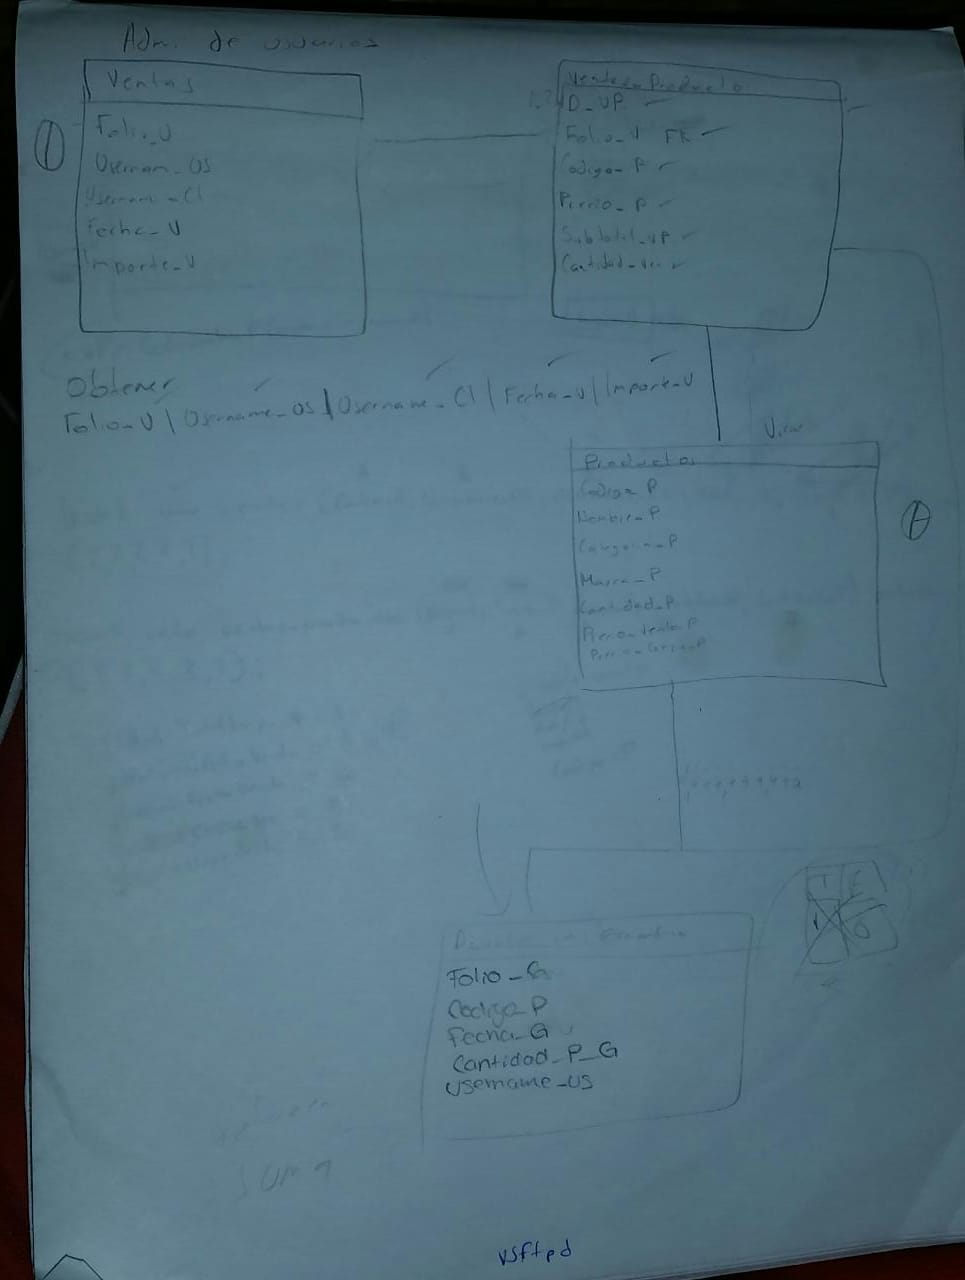 Adm. de usuarios
Ventas
Folio_V
Usernam_US
Username_Cl
Fecha_V
Importe_V
Venta_Producto
D_VP
Folio_V FK
Codigo_P
Precio_P
Subtotal_VP
Cantidad_Ven
Obtener
Folio_V | Username_US | Username_Cl | Fecha_V | Importe_V
View
Productos
Codigo_P
Nombre_P
Categoria_P
Marca_P
Cantidad_P
Precio_Venta_P
Folio_G
Codigo_P
Fecha_G
Cantidad_P_G
Username_US
SUMA
vsftpd